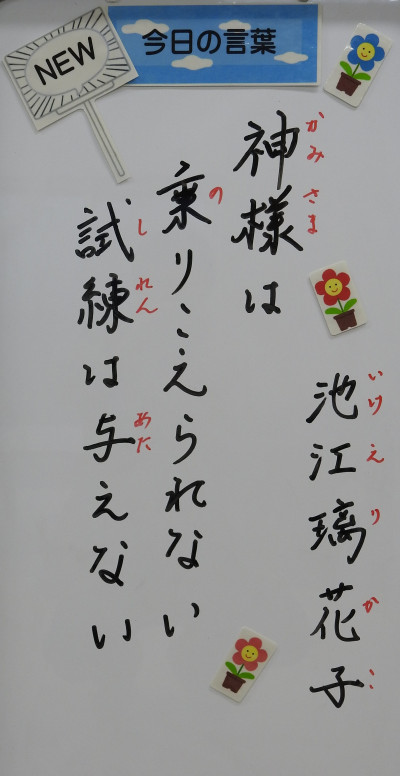 NEW
今日の言葉
池江璃花子
いけえりかこ
神様は
かみさま
乗りこえられない
の
試練は与えない
しれん あた